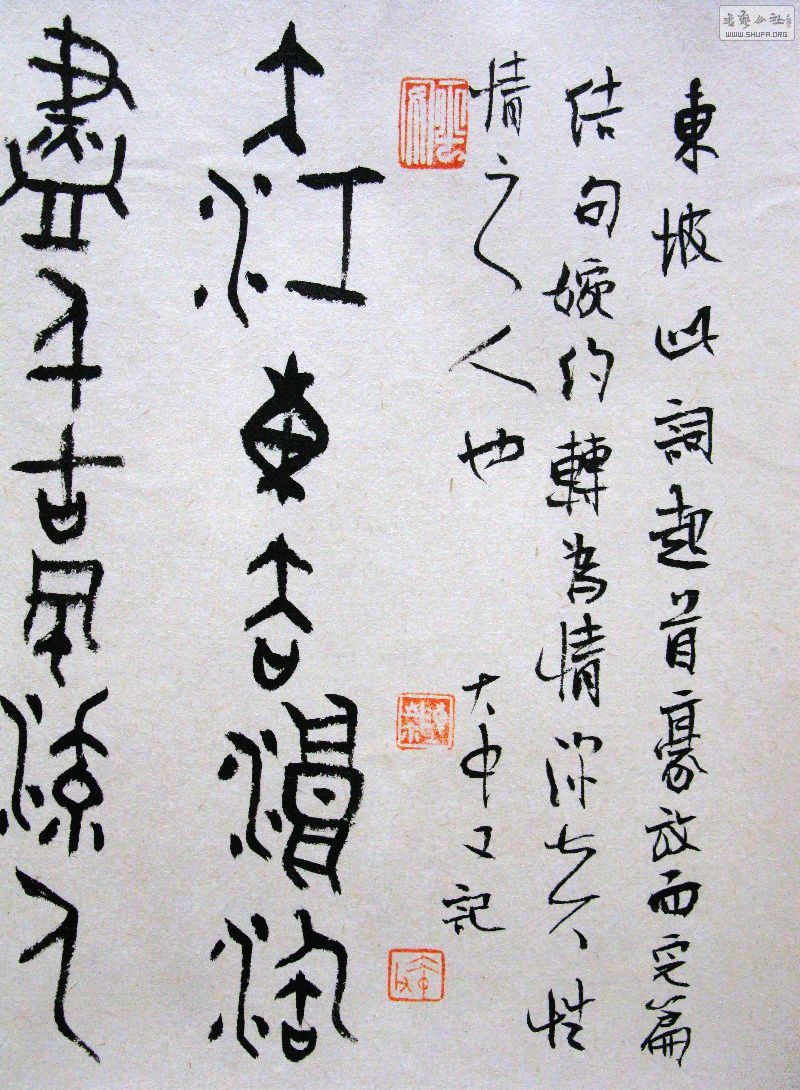 東坡此詞起首豪放而完篇
結句婉約轉為情深性
情之人也
大又記
大江東去浪淘
盡千古風流人
書藝公社
WWW.SHUFA.ORG